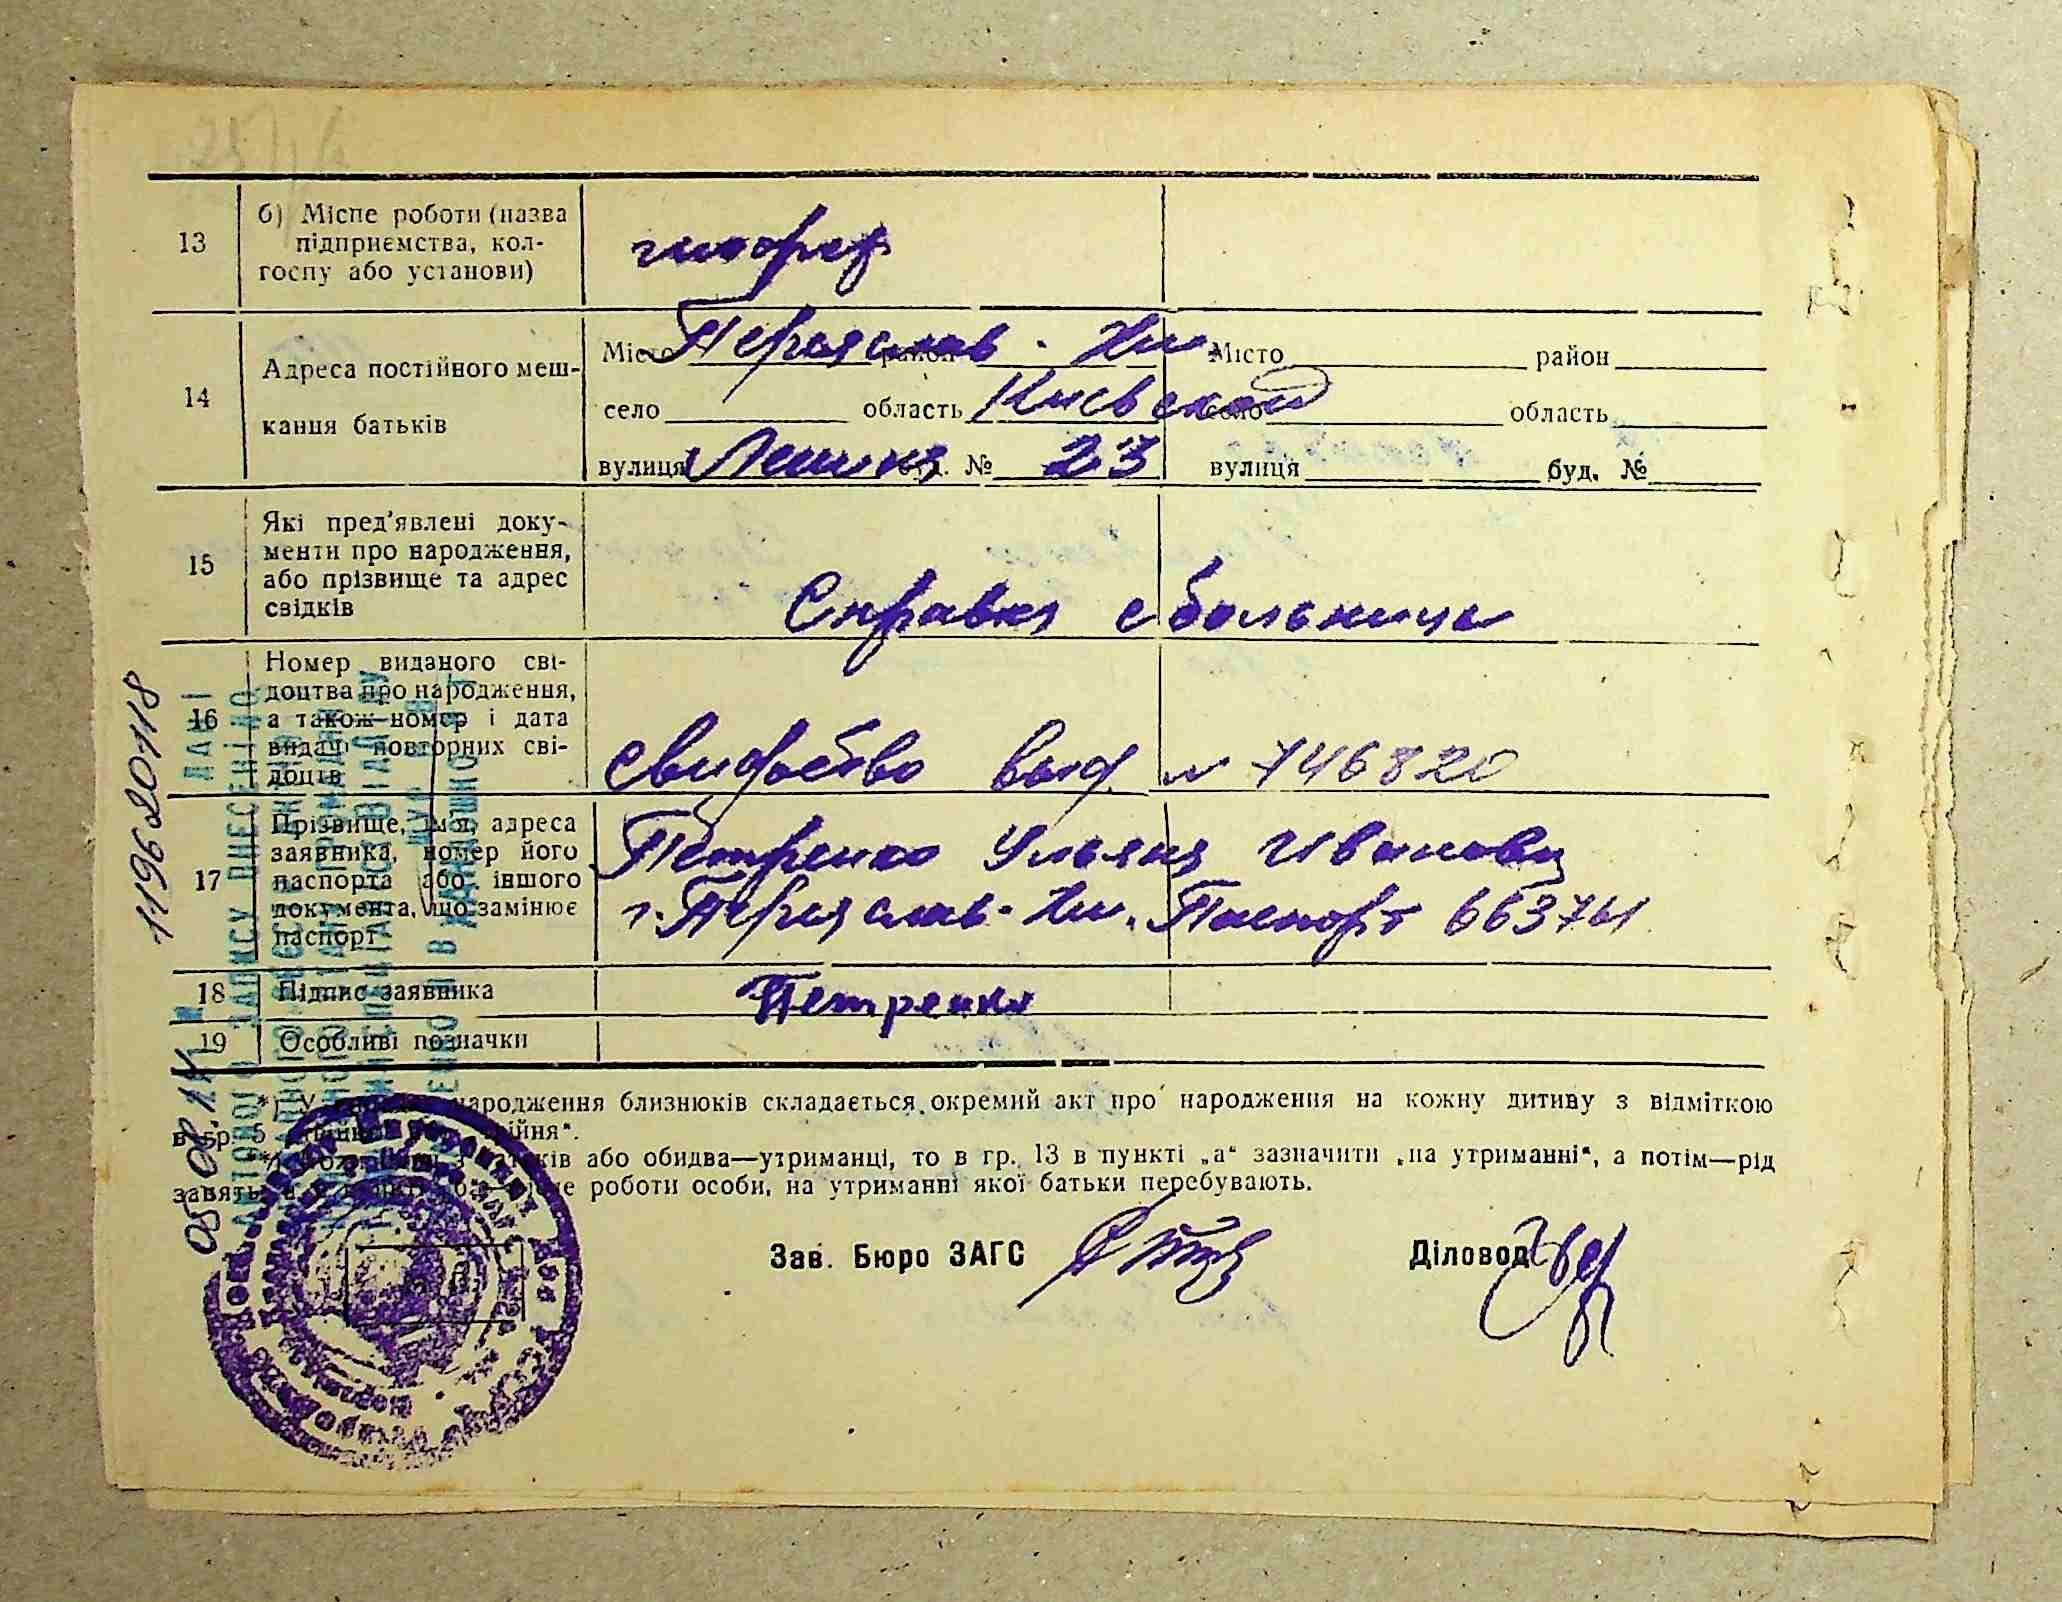 13
б) Місце роботи (назва
підприємства, кол-
госпу або установи)
шофер
14
Адреса постійного меш-
кання батьків
Місто Переяслав-Хм район
село область Киевской
вулиця Ленина буд. № 23
Місто район
село область
вулиця буд. №
15
Які пред'явлені доку-
менти про народження,
або прізвище та адрес
свідків
Справка с больницы
16
Номер виданого сві-
доцтва про народження,
а також номер і дата
видачі повторних сві-
доцтв
свидетство выд. № 746820
17
Прізвище, ім'я, адреса
заявника, номер його
паспорта або іншого
документа, що замінює
паспорт
Петренко Ульяна Ивановна
г. Переяслав-Хм. Паспорт 663741
18
Підпис заявника
Петренко
19
Особливі позначки
*) У народження близнюків складається окремий акт про народження на кожну дитину з відміткою
в гр. 5
або обидва—утриманці, то в гр. 13 в пункті „а" зазначити „на утриманні", а потім—рід
занять, роботи особи, на утриманні якої батьки перебувають.
Зав. Бюро ЗАГС
Діловод
1196 20118
05.08.14